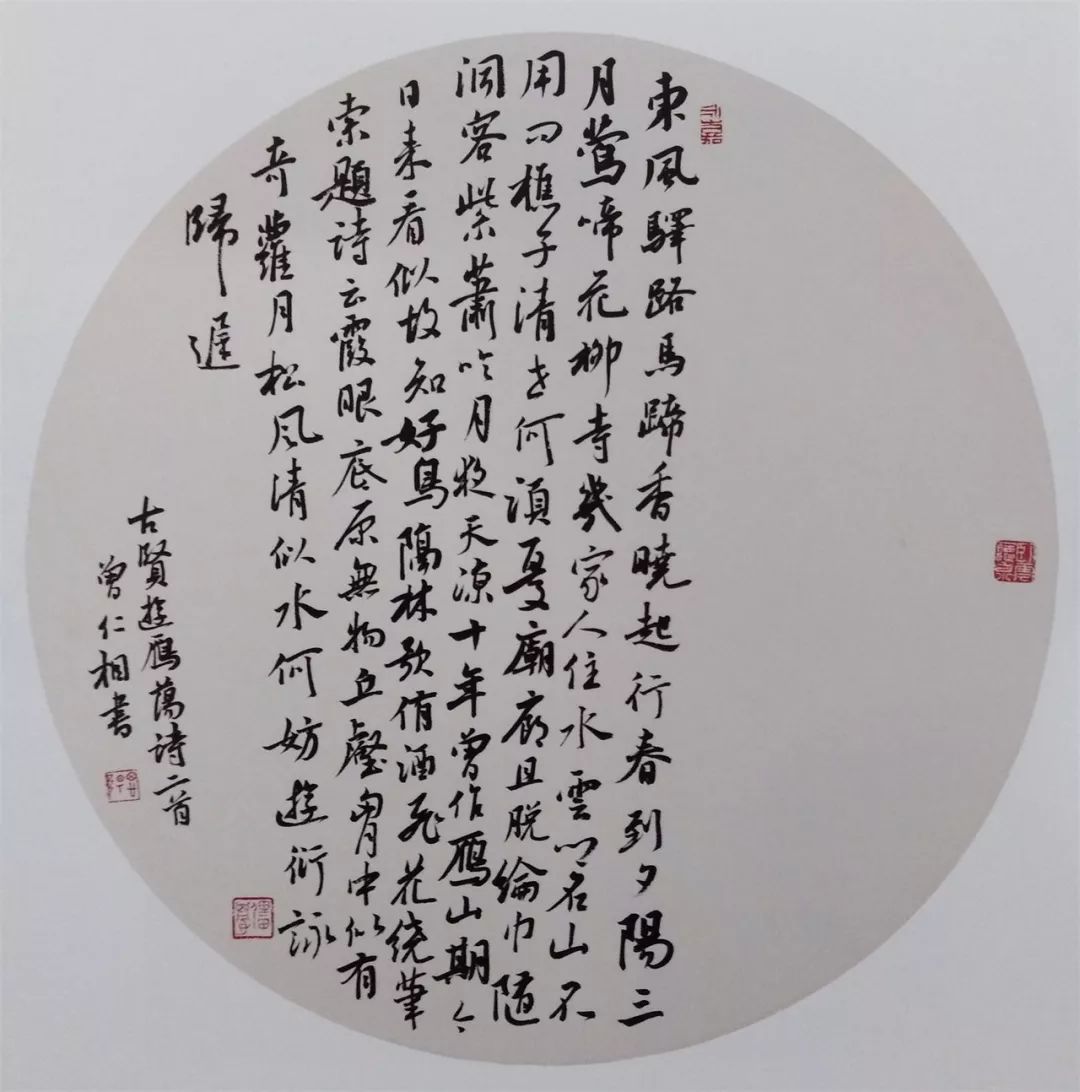 東風驛路馬蹄香曉起行春到夕陽三
月鶯啼花柳寺幾家人住水雲鄉名山不
用问樵子清世何須憂廟廊且脫綸巾隨
洞客紫蕭吟月夜天凉十年曾作鴈山期今
日来看似故知好鳥隔林歌侑酒飛花绕筆
索題詩云霞眼底原無物丘壑胸中似有
奇蘿月松風清似水何妨遊衍詠
歸遲
古賢遊鴈蕩詩二首
曾仁相書